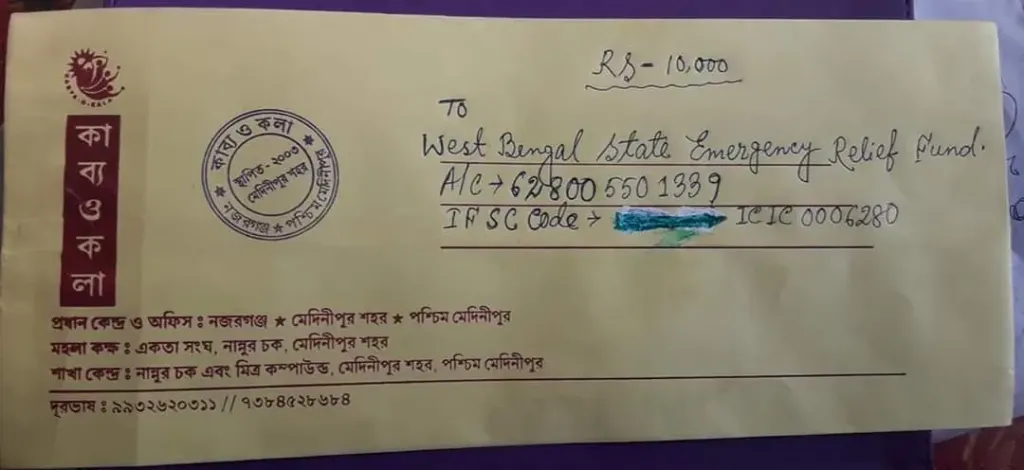 RS - 10,000
TO
West Bengal State Emergency Relief Fund.
A/C → 628005501339
IFSC Code → ICIC0006280
কাব্য ও কলা
কাব্য ও কলা
স্থাপিত - ২০০৩
মেদিনীপুর শহর
★ নজরগঞ্জ ★ পশ্চিম মেদিনীপুর ★
প্রধান কেন্দ্র ও অফিস ঃ নজরগঞ্জ ★ মেদিনীপুর শহর ★ পশ্চিম মেদিনীপুর
মহলা কক্ষ ঃ একতা সংঘ, নান্নুর চক, মেদিনীপুর শহর
শাখা কেন্দ্র ঃ নান্নুর চক এবং মিত্র কম্পাউন্ড, মেদিনীপুর শহর, পশ্চিম মেদিনীপুর
দূরভাষ ঃ ৯৯৩২৬২০৩১১ // ৭৩৮৪৫২৮৬৮৪